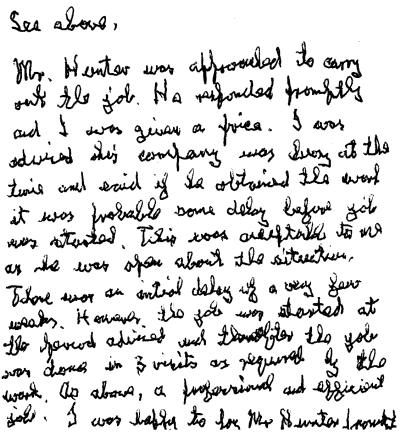 See above,
Mr. Hunter was approached to carry
out the job. He responded promptly
and I was given a price. I was
advised his company was busy at the
time and said if he obtained the work
it was probable some delay before job
was started. This was acceptable to me
as he was open about the situation.
There was an initial delay of a very few
weeks. However the job was started at
the period advised and the job
was done in 3 visits as required by the
work. As above, a professional and efficient
job. I was happy to pay Mr Hunter promptly